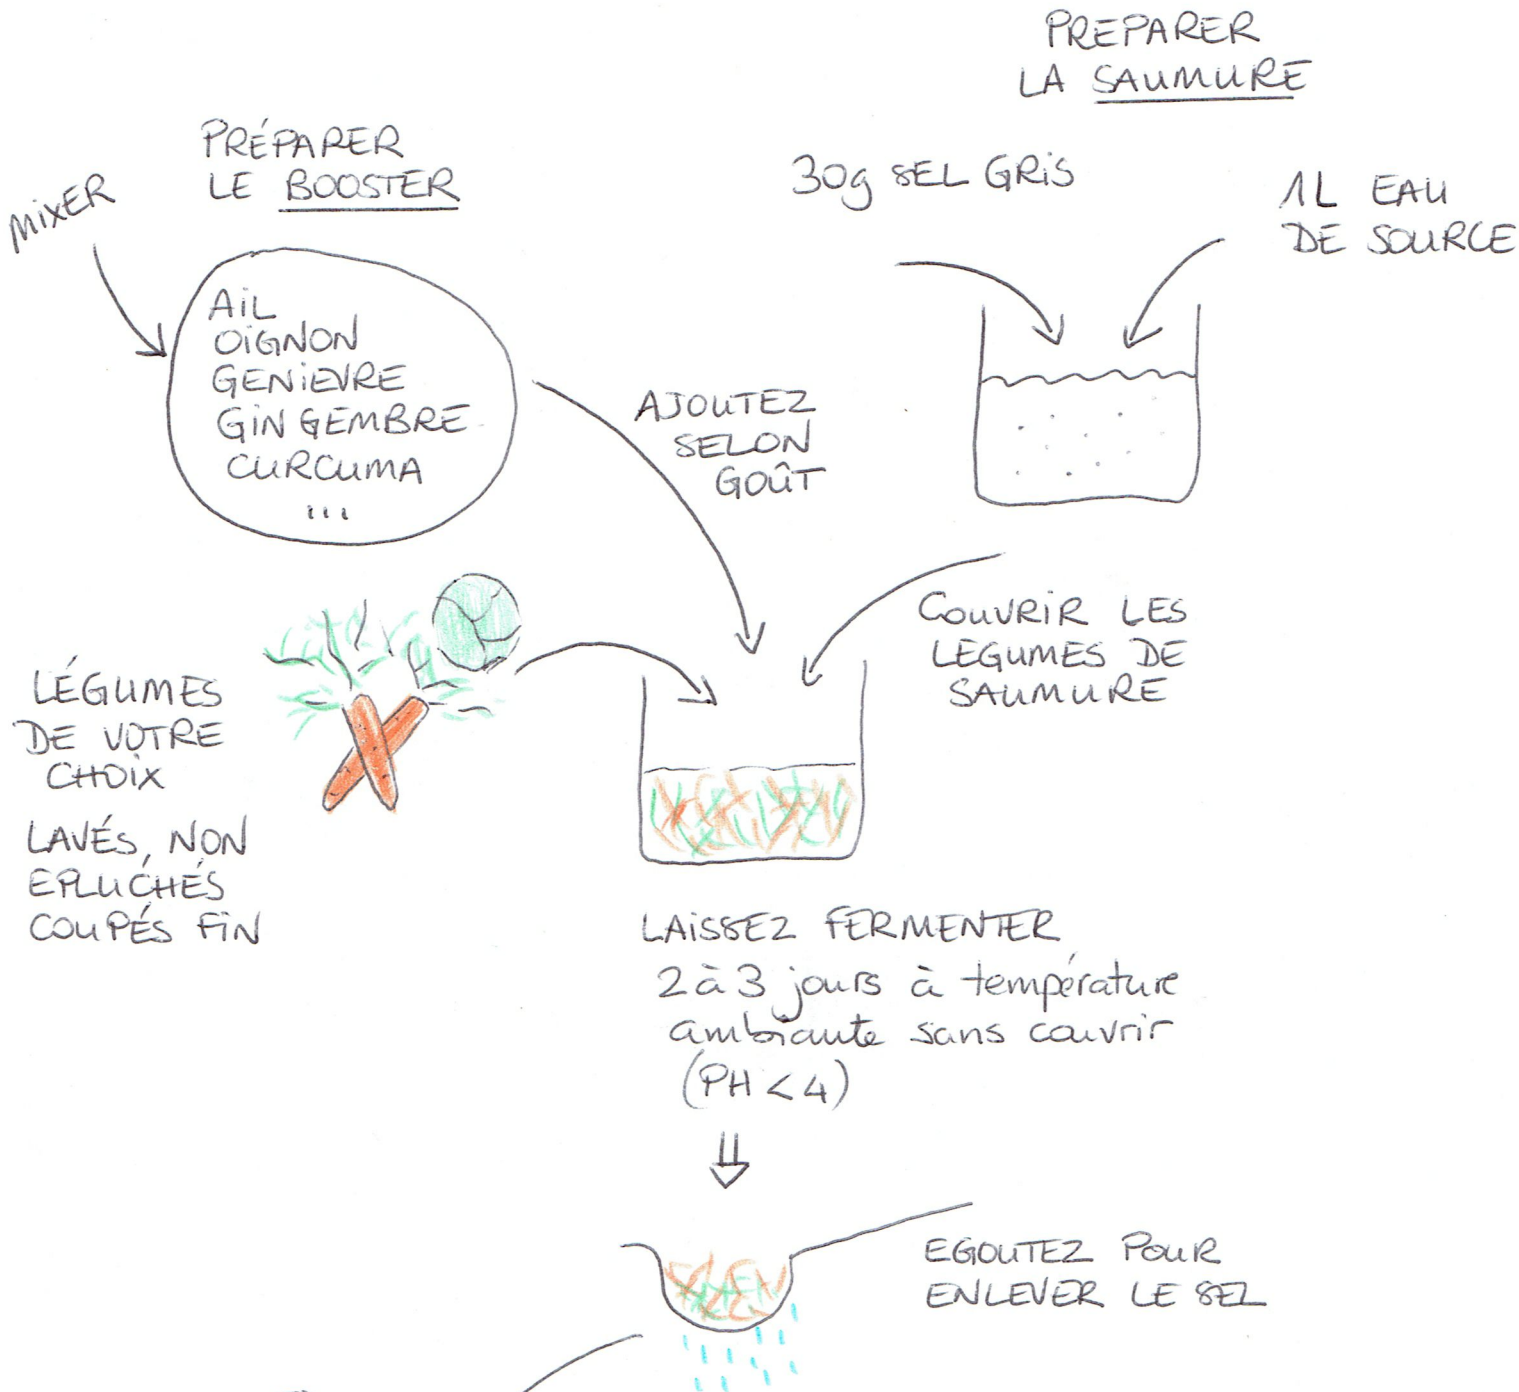 PREPARER
LA SAUMURE
PRÉPARER
LE BOOSTER
MIXER
30g SEL GRIS
1L EAU
DE SOURCE
AIL
OIGNON
GENIEVRE
GINGEMBRE
CURCUMA
...
AJOUTEZ
SELON
GOÛT
COUVRIR LES
LEGUMES DE
SAUMURE
LÉGUMES
DE VOTRE
CHOIX
LAVÉS, NON
EPLUCHÉS
COUPÉS FIN
LAISSEZ FERMENTER
2 à 3 jours à température
ambiante sans couvrir
(PH < 4)
EGOUTEZ POUR
ENLEVER LE SEL